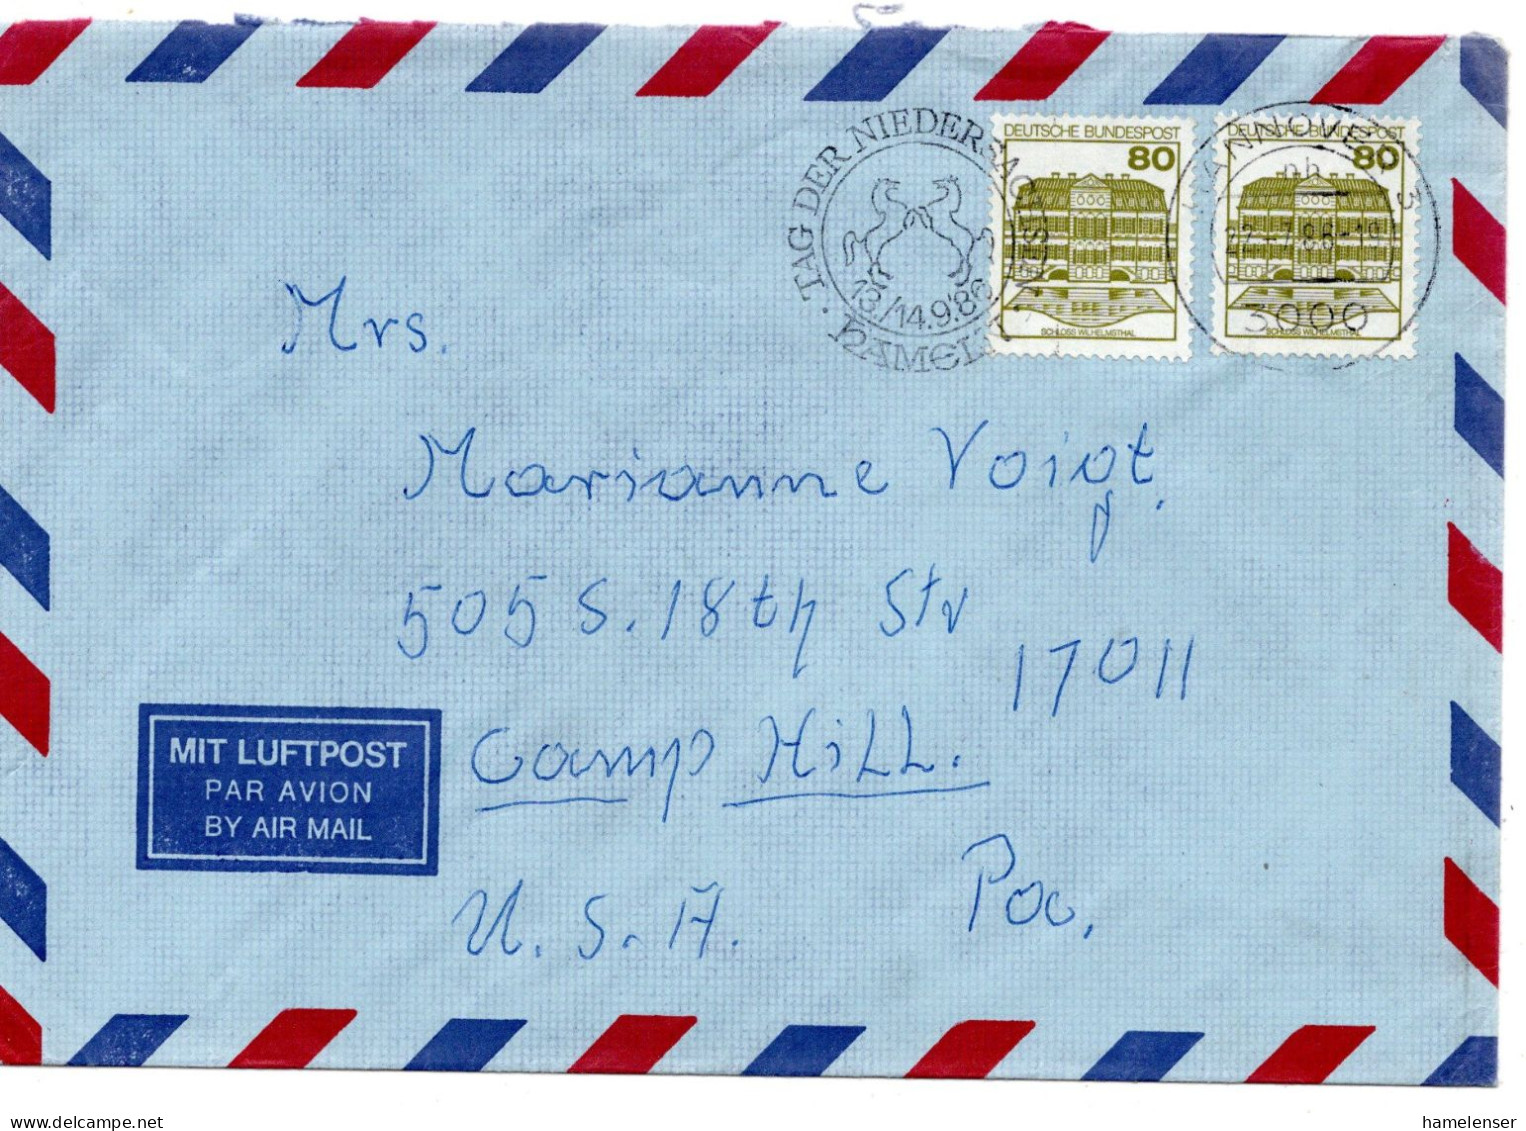 · TAG DER NIEDERSACHSEN ·
13./14.9.86
HAMELN
DEUTSCHE BUNDESPOST
80
SCHLOSS WILHELMSTHAL
DEUTSCHE BUNDESPOST
80
SCHLOSS WILHELMSTHAL
HANNOVER 3
nb
22.-7.86-19
3000
Mrs.
Marianne Voigt.
505 S. 18th Str
17011
Camp Hill.
Pa.
U.S.A.
MIT LUFTPOST
PAR AVION
BY AIR MAIL
hamelenser
delcampe.net